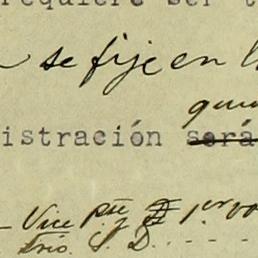 requiere ser
se fije en
istración será
Vice Pte y 1er vo
Srio. P. D. - - - -